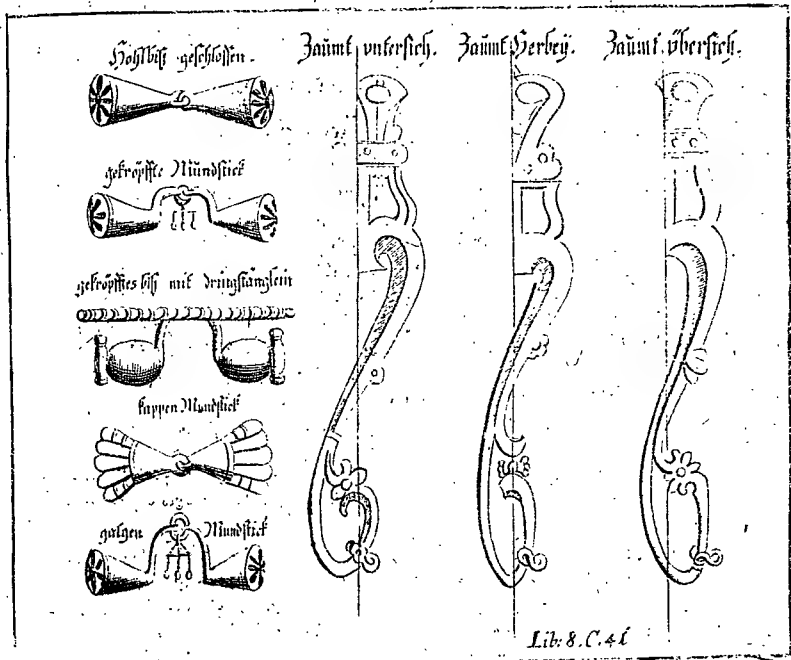 Hohlbiß geschlossen.
gekröpffte Mündstick
gekröpfftes biß mit dringstänglein
kappen Mundstick
galgen Mündstick
Zaümt vntersich.
Zaümt Herbeÿ.
Zaümt übersich.
Lib: 8. C. 41